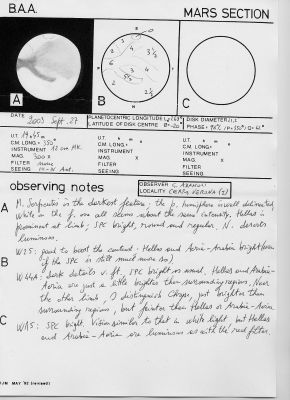 B.A.A.
MARS SECTION
A
B
C
DATE 2003 Sept. 27
PLANETOCENTRIC LONGITUDE
LATITUDE OF DISK CENTRE
DISK DIAMETER
PHASE
U.T. 19h 45m
C.M. LONG= 350°
INSTRUMENT
MAG. 300 X
FILTER none
SEEING
U.T. h m
C.M. LONG= °
INSTRUMENT
MAG. X
FILTER
SEEING
U.T. h m
C.M. LONG= °
INSTRUMENT
MAG. X
FILTER
SEEING
observing notes
OBSERVER G. ADAMOLI
LOCALITY VERONA (I)
A
M. Serpentis is the darkest feature; the p. hemisphere is well delineated,
while in the f. one all seems about the same intensity. Hellas is
prominent at limb; SPC bright, round and regular. N. deserts
luminous.
W25: good to boost the contrast. Hellas and Aeria-Arabia bright (even
if the SPC is still much more so)
B
W44A: dark details v. ft. SPC bright as usual. Hellas and Arabia-
Aeria are just a little brighter than surrounding regions. Near
the other limb, I distinguish Chryse, just brighter than
surrounding regions, but fainter than Hellas or Arabia-Aeria.
C
W15: SPC bright. Vision similar to that in white light, but Hellas
and Arabia-Aeria are luminous as with the red filter.
RJM MAY '82 (revised)